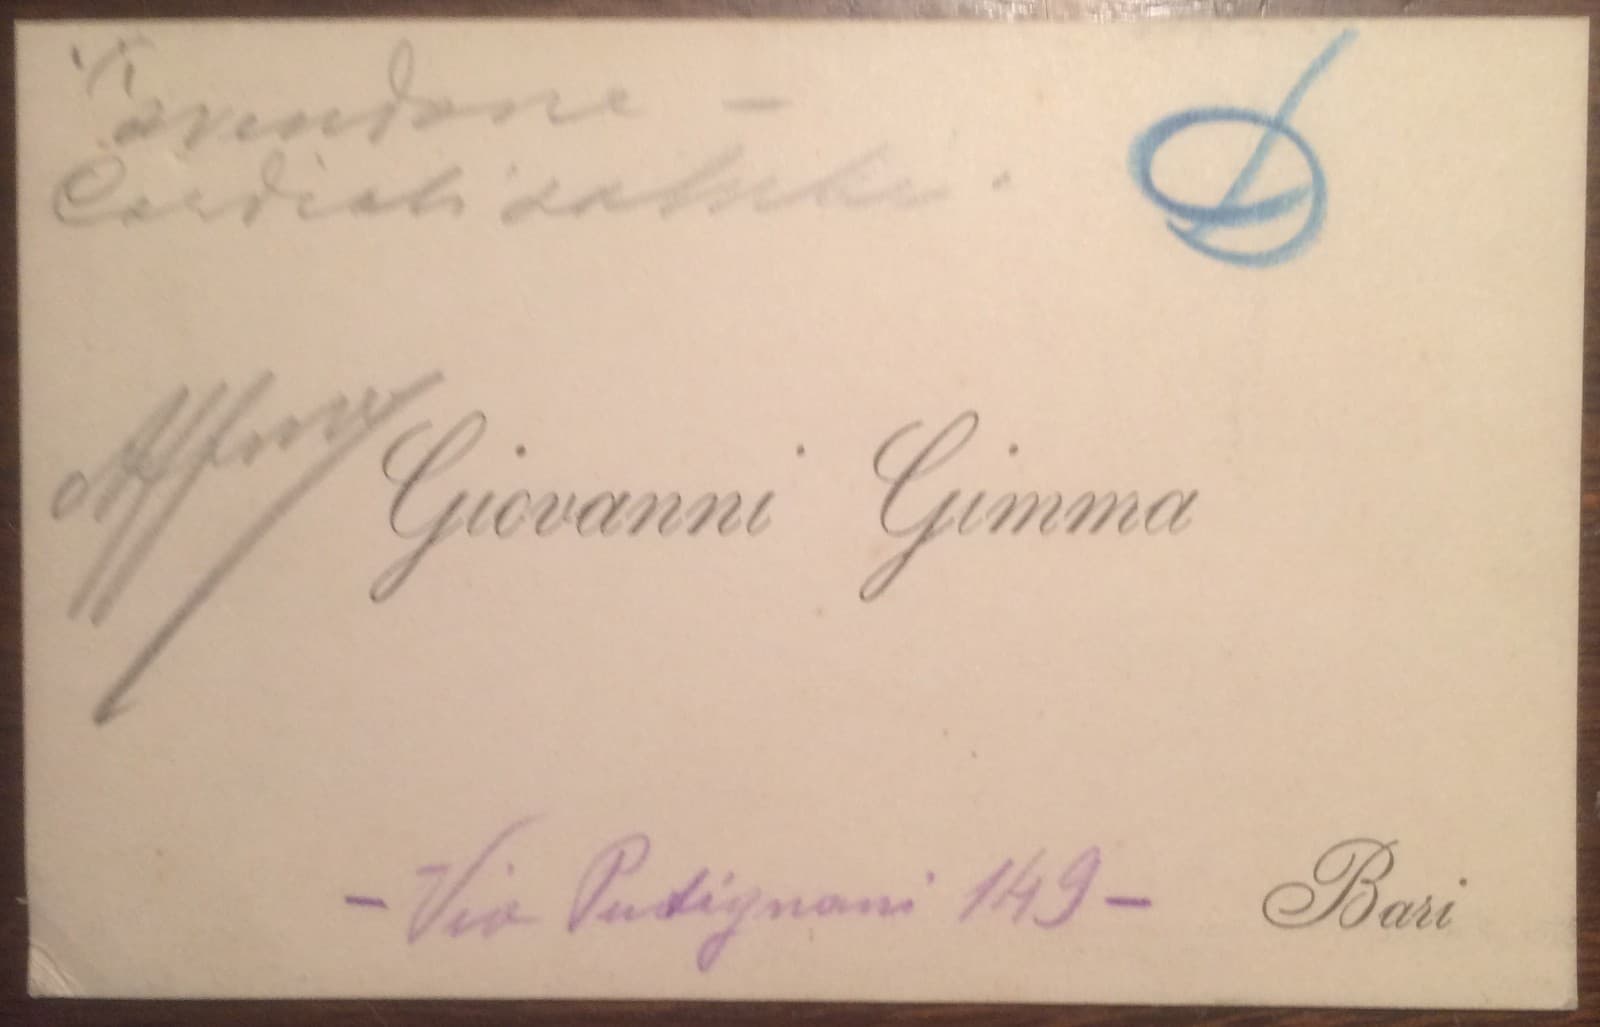 Cordiali saluti.
Giovanni Gimma
- Via Putignani 149 -
Bari